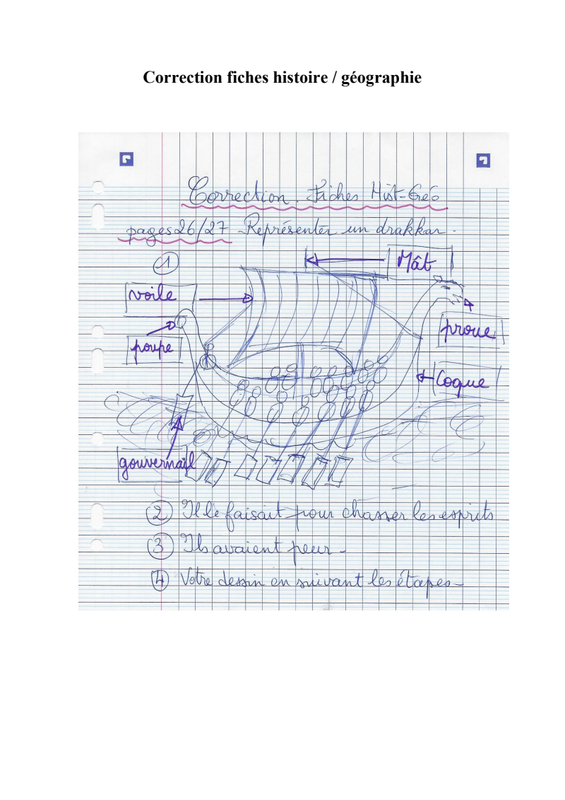 Correction fiches histoire / géographie
Correction. Fiches Hist-Géo
pages 26/27 - Représenter un drakkar.
1
Mât
voile
proue
poupe
Coque
gouvernail
2 Il le faisait pour chasser les esprits
3 Ils avaient peur.
4 Votre dessin en suivant les étapes.